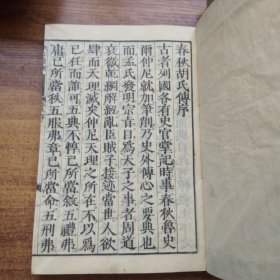 春秋胡氏傳序
古者列國各有史官掌記時事春秋魯史
爾仲尼就加筆削乃史外傳心之要典也
而孟氏發明宗旨目爲天子之事者周道
衰微乾綱解紐亂臣賊子接迹當世人欲
肆而天理滅矣仲尼天理之所在不以爲
己任而誰可五典弗惇己所當敘五禮弗
庸己所當秩五服弗章己所當命五刑弗